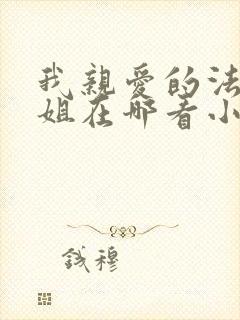 我親愛的法
姐在哪看小
錢穆